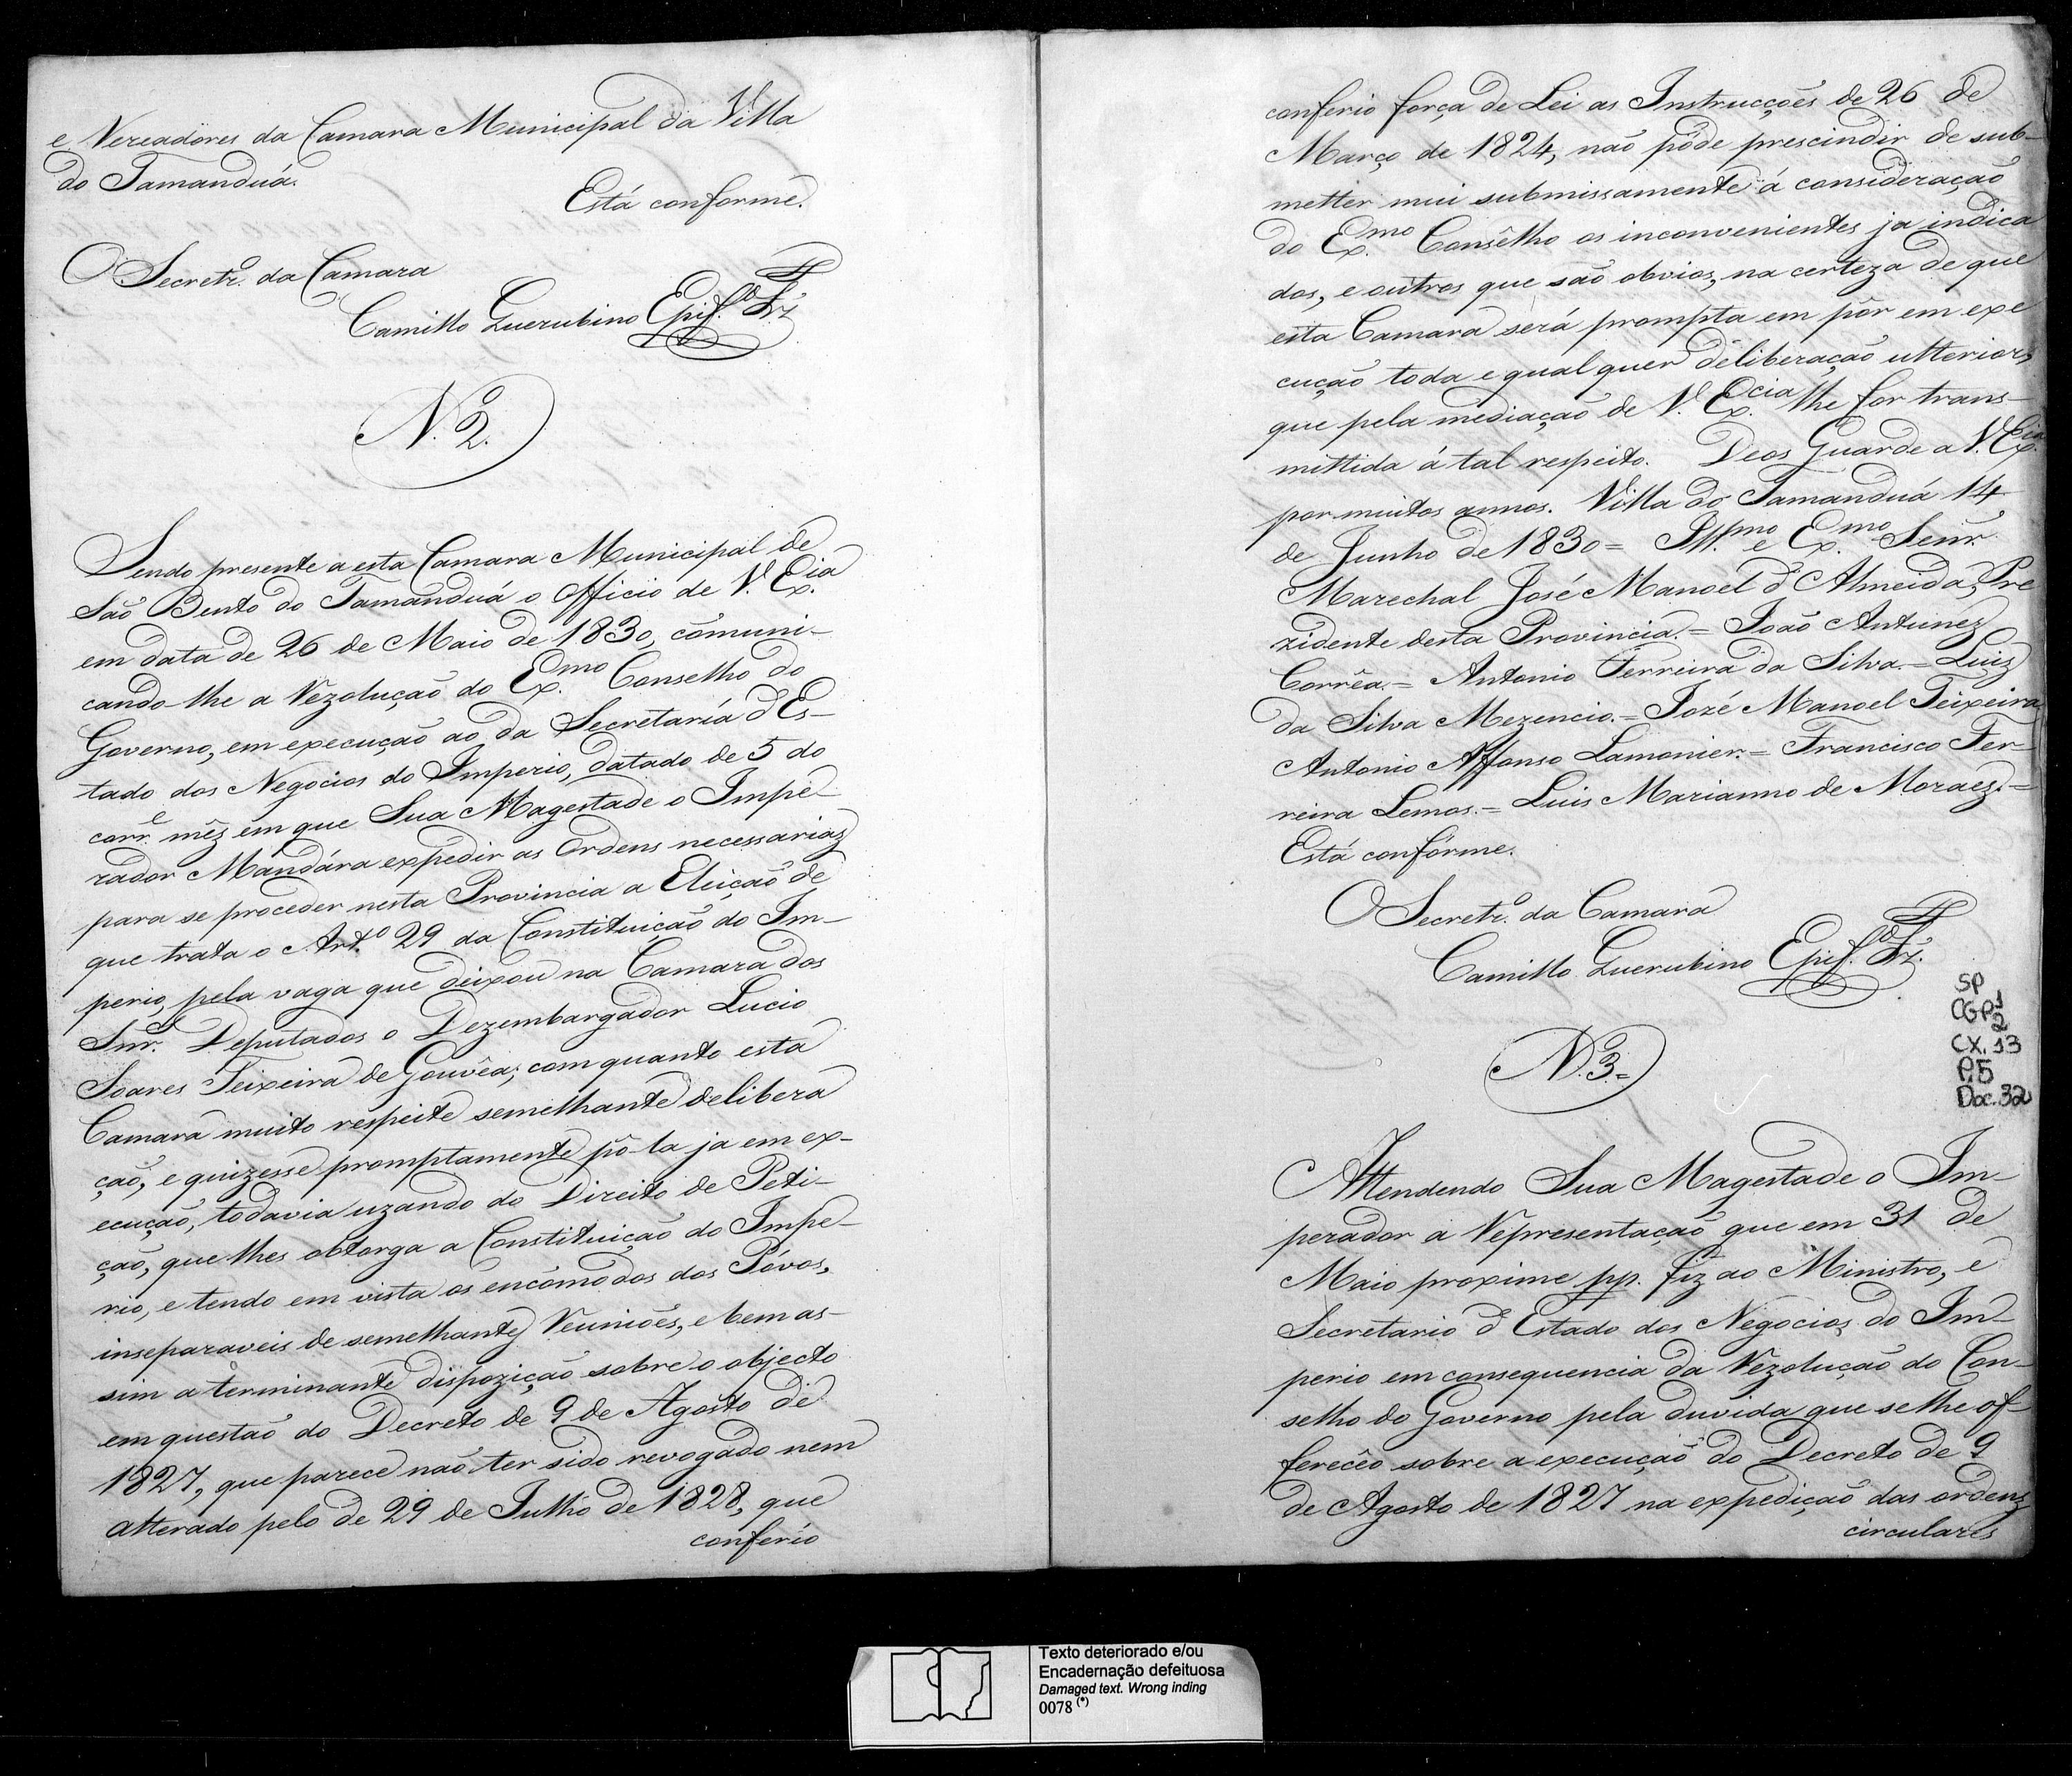 e Vereadores da Camara Municipal da Villa
do Tamanduá.
Está conforme.
O Secretrº. da Camara
Camillo Querubino Epif.º Frz
N.º 2.
Sendo presente a esta Camara Municipal de
São Bento do Tamanduá o Officio de V. Ex.cia
em data de 26 de Maio de 1830, cômuni-
cando-lhe a Rezolução do Ex.mo Conselho do
Governo, em execução ao da Secretaría d'Es-
tado dos Negocios do Imperio, datado de 5 do
corr.e mês em que Sua Magestade o Impe-
rador Mandára expedir as Ordens necessarias
para se proceder nesta Provincia a Eleição de
que trata o Art.º 29 da Constituição do Im-
perio, pela vaga que deixou na Camara dos
Snr.s Deputados o Dezembargador Lucio
Soares Teixeira de Gouvêa; com quanto esta
Camara muito respeite semelhante delibera
ção, e quizesse promptamente pô-la ja em ex-
ecução, todavia uzando do Direito de Peti-
ção, que lhes obtorga a Constituição do Impe-
rio, e tendo em vista os encômodos dos Póvos,
inseparaveis de semelhantes Reuniões, e bem as-
sim a terminante dispozição sobre o objecto
em questão do Decreto de 9 de Agosto de
1827, que parece não ter sido revogado nem
alterado pelo de 29 de Julho de 1828, que
conferio
conferio força de Lei as Instrucções de 26 de
Março de 1824, não póde prescindir de sub-
metter mui submissamente á consideração
do Ex.mo Consêlho os inconvenientes ja indica
dos, e outros que são obvios, na certeza de que
esta Camara será prompta em pôr em exe
cução toda e qual quer deliberação ulterior,
que pela mediação de V. Ex.cia lhe for trans-
mittida á tal respeito. Deos Guarde a V. Ex.cia
por muitos annos. Villa do Tamanduá 14
de Junho de 1830 = Ill.mo e Ex.mo Senr.
Marechal José Manoel d'Almeida, Pre
zidente desta Provincia. = João Antunez
Corrêa. = Antonio Ferreira da Silva. = Luiz
da Silva Mezencio. = Jozé Manoel Teixeira
Antonio Affonso Lamonier. = Francisco Fer-
reira Lemos. = Luis Marianno de Moraez. =
Está confórme.
O Secretrº. da Camara
Camillo Querubino Epif.º Frz.
SP
CGP1
2
CX. 13
P.5
Doc. 32
N.º 3. =
Attendendo Sua Magestade o Im-
perador a Representação que em 31 de
Maio proxime pp. fiz ao Ministro, e
Secretario d'Estado dos Negocios do Im-
perio em consequencia da Rezolução do Con-
selho do Governo pela duvida que se lhe of-
ferecêo sobre a execução do Decreto de 9
de Agosto de 1827 na expedição das ordens
circulares
Texto deteriorado e/ou
Encadernação defeituosa
Damaged text. Wrong inding
0078 (*)